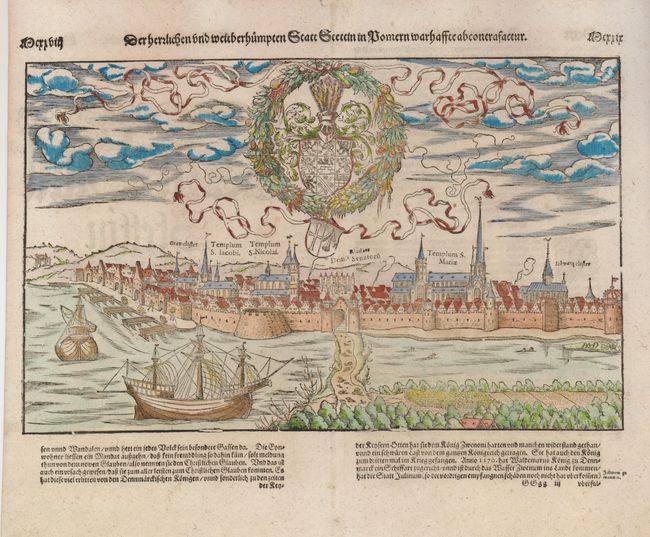 Mccxviij Der herrlichen vnd weltberhümpten Statt Stettin in Pomern warhaffte abconterafactur. Mccxix
Graw closter
Templum S. Iacobi.
Templum S. Nicolai.
Domus Senatorū
Templum S. Mariæ
Schwartz closter
sen vnnd Wandalen / vnnd hett ein jedes Volck sein besondere Gassen da. Die Eyn-
wohner liessen ein Mandat außgehn / daß kein frembdling so dahin käm / solt meldung
thun von dem newen Glauben / also nennten sie den Christlichen Glauben. Vnd das ist
auch ein vrsach gewesen daß sie zum aller letsten zum Christlichen Glauben kommen. Es
hat diese viel erlitten von den Dennmärckischen Königen / vnnd sonderlich zu den zeiten
der Key-
der Keysern Otten hat sie dem König Zwenoni hart en vnd manchen widerstand gethan /
vnnd ein schwären Last von dem gantzen Königreich getragen. Sie hat auch den König
zum dritten mal im Krieg gefangen. Anno 1170. hat Waldemarus König zu Denn-
marck ein Schiffart zugericht / vnnd ist durch das Wasser Zwenum ins Landt kommen /
hat die Statt Julinum, so die vordrigen empfangnen schäden noch nicht hat vberkommen /
GGgg iij vberfal-